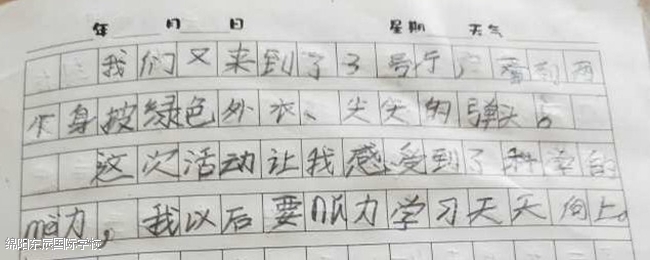 年 月 日 星期 天气
我们又来到了3号厅,看到两
个身披绿色外衣、尖尖的弹头。
这次活动让我感受到了科学的
mèi力,我以后要努力学习天天向上。
绵阳东辰国际学校